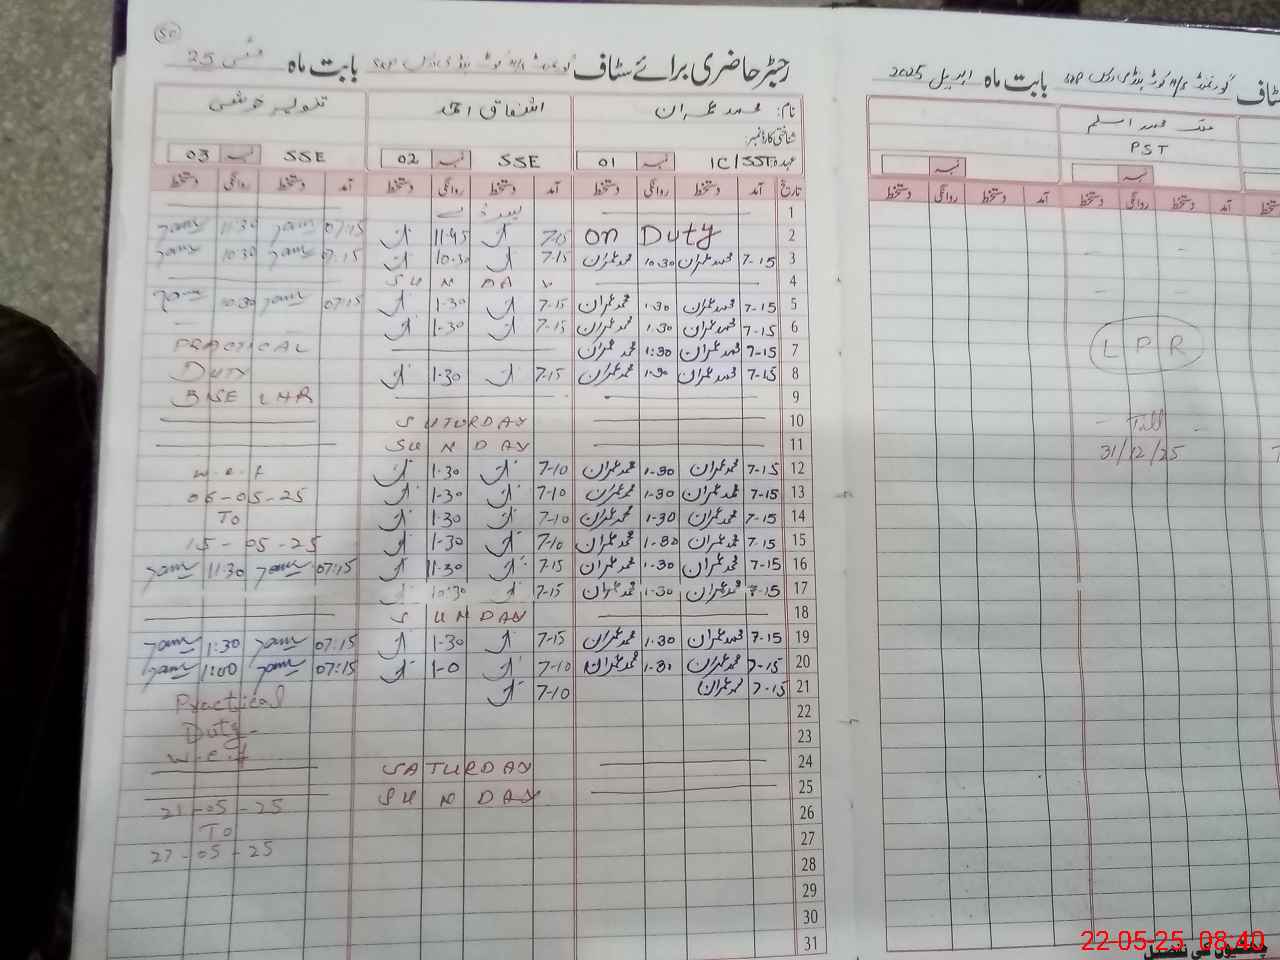 رجسٹر حاضری برائے سٹاف گورنمنٹ بابت ماہ مئی 25
نام: محمد عمران اشفاق احمد
شناختی کارڈ نمبر:
عہدہ: IC/SST نمبر 01 SSE نمبر 02 SSE نمبر 03
تاریخ آمد دستخط روانگی دستخط آمد دستخط روانگی دستخط آمد دستخط روانگی دستخط
1
2 on Duty 7-15 11-45 07:15 11:30
3 7-15 محمد عمران 10-30 محمد عمران 7-15 10-30 07:15 10:30
4 SUNDAY
5 7-15 محمد عمران 1-30 محمد عمران 7-15 1-30 07:15 10:30
6 7-15 محمد عمران 1-30 محمد عمران 7-15 1-30
7 7-15 محمد عمران 1:30 محمد عمران PRACTICAL
8 7-15 محمد عمران 1-30 محمد عمران 7-15 1-30 DUTY
9 BISE LHR
10 SUTURDAY
11 SUNDAY
12 7-15 محمد عمران 1-30 محمد عمران 7-10 1-30 w.e.f
13 7-15 محمد عمران 1-30 محمد عمران 7-10 1-30 06-05-25
14 7-15 محمد عمران 1-30 محمد عمران 7-10 1-30 To
15 7-15 محمد عمران 1-30 محمد عمران 7-10 1-30 15-05-25
16 7-15 محمد عمران 1-30 محمد عمران 7-15 11-30 07:15 11:30
17 7-15 محمد عمران 1-30 محمد عمران 7-15 10:30
18 SUNDAY
19 7-15 محمد عمران 1-30 محمد عمران 7-15 1-30 07:15 1:30
20 7-15 محمد عمران 1-30 محمد عمران 7-10 1-0 07:15 1:00
21 7-15 محمد عمران 7-10 Practical
22 Duty
23 w.e.f
24 SATURDAY
25 SUNDAY 21-05-25
26 To
27 27-05-25
28
29
30
31
سٹاف گورنمنٹ بابت ماہ اپریل 2025
ملک محمد اسلم
PST
نمبر نمبر
آمد دستخط روانگی دستخط آمد دستخط روانگی دستخط
LPR
Till
31/12/25
22-05-25 08:40